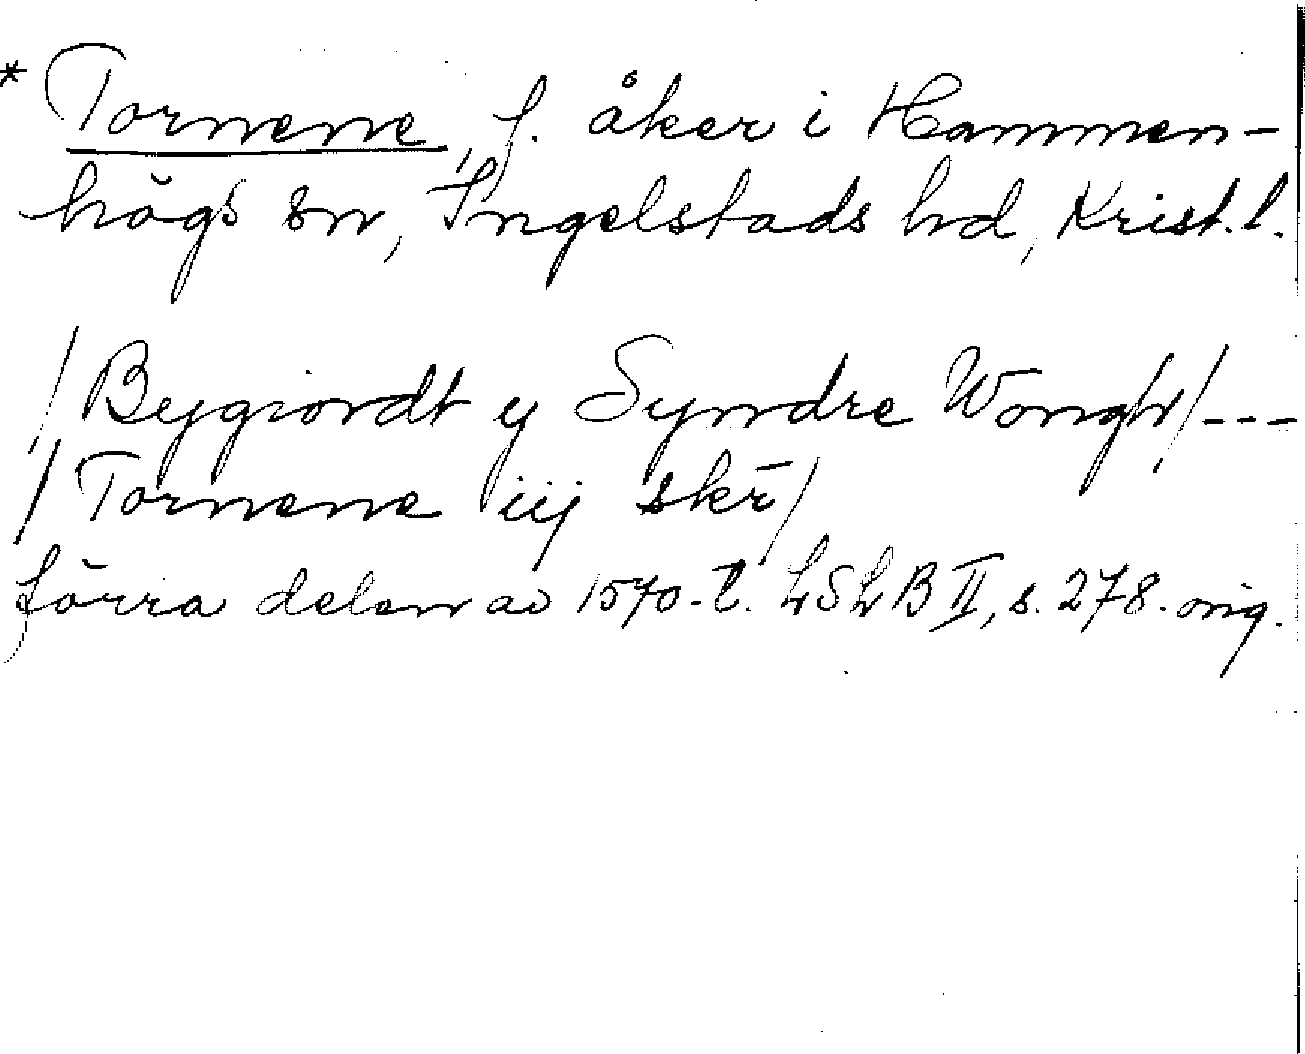 * Tornene, f. åker i Hammen-
högs sn, Ingelstads hd, Krist. l.
/Bygiordt y Syndre Wongh/---
/Tornene iij skr̄/
förra delen av 1570-t. LSLB II, s. 278. orig.